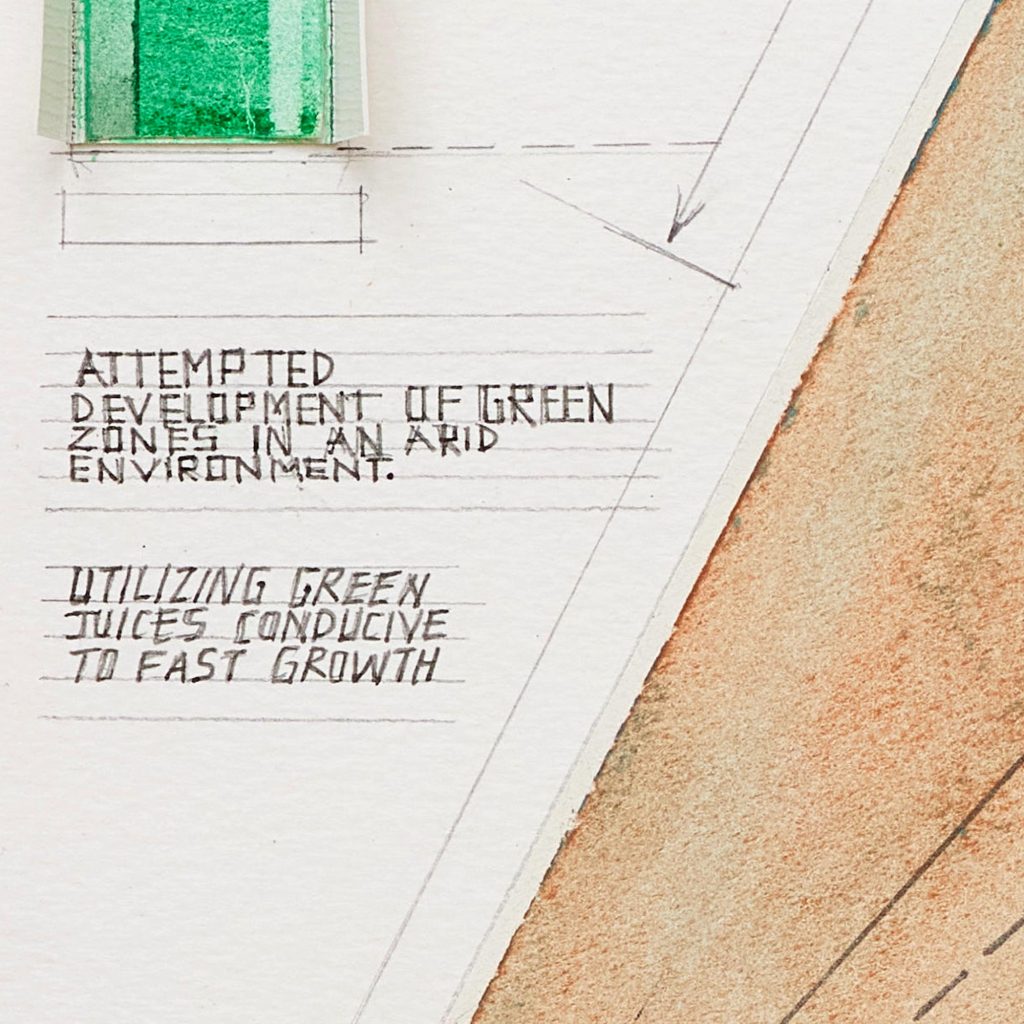 ATTEMPTED
DEVELOPMENT OF GREEN
ZONES IN AN ARID
ENVIRONMENT.
UTILIZING GREEN
JUICES CONDUCIVE
TO FAST GROWTH